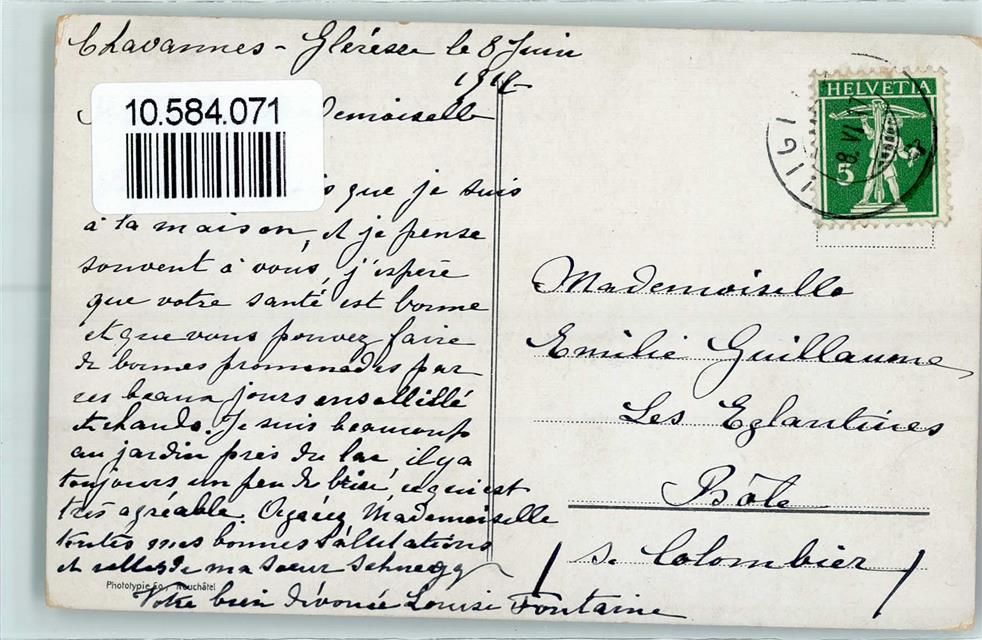 Chavannes - Gléresse le 8 Juin
10.584.071
demoiselle
que je suis
à la maison, et je pense
souvent à vous, j'espère
que votre santé est bonne
et que vous pouvez faire
de bonnes promenades par
ces beaux jours ensolleillé
et chauds. Je suis beaucoup
au jardin près du lac, il y a
toujours un peu de brise, ce qui est
très agréable. Agréez Mademoiselle
toutes mes bonnes Salutations
et celles de ma soeur Schnegg
Votre bien dévouée Louise Fontaine
Phototypie Co., Neuchâtel
HELVETIA
5
8.VI.17
LIGE
Mademoiselle
Emilie Guillaume
Les Eglantines
Bôle
s. Colombier